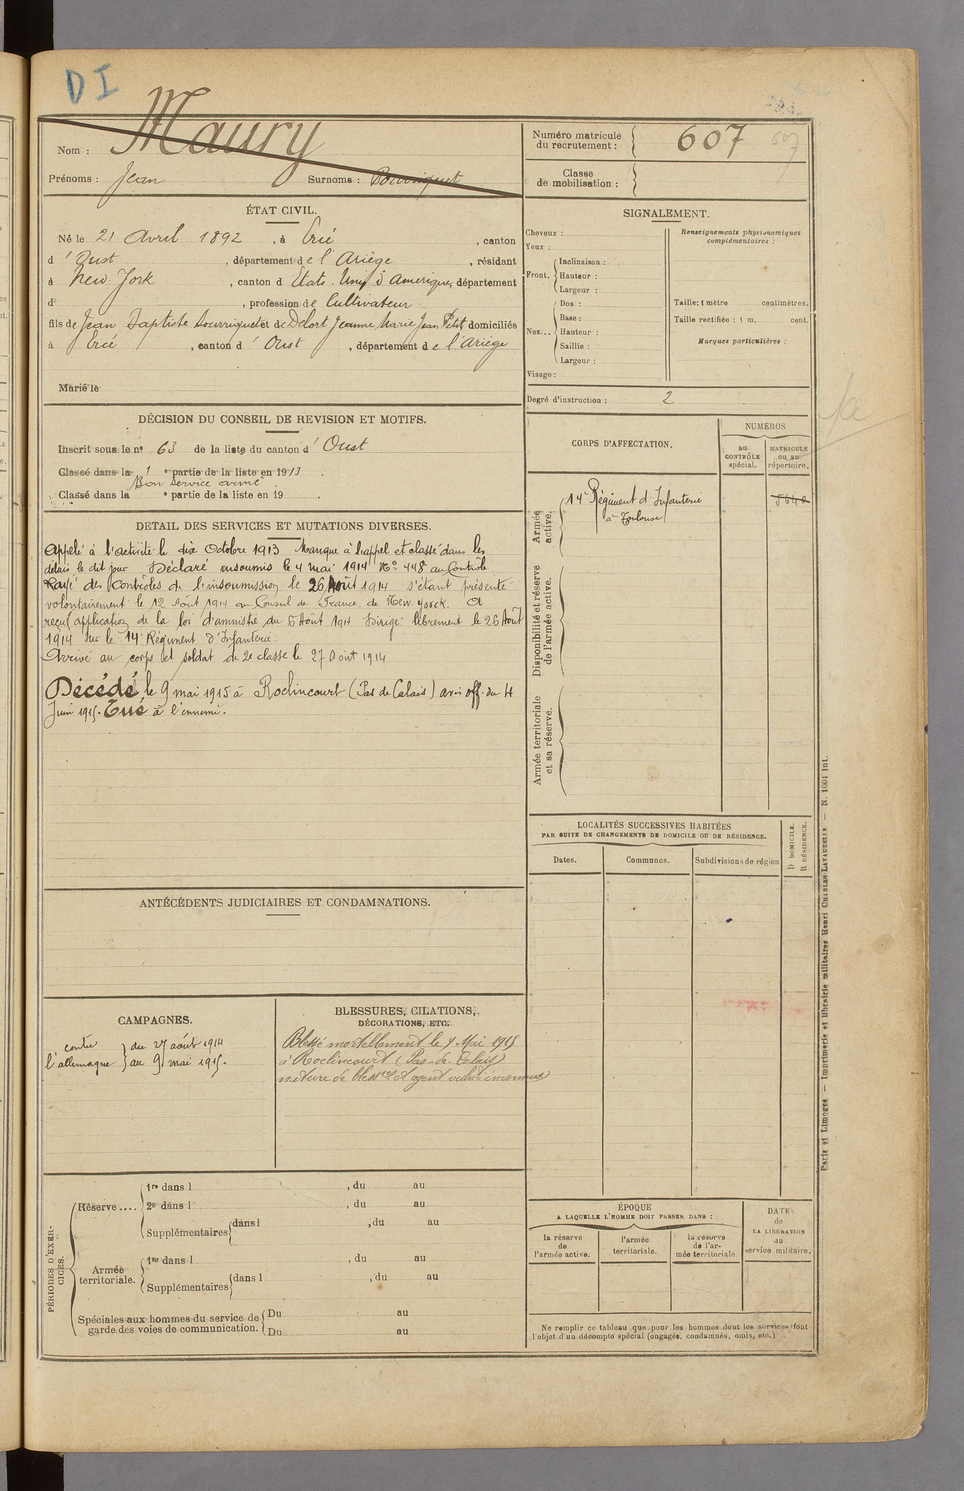 DI
Nom : Maury
Prénoms : Jean Surnoms : Bourriquet
Numéro matricule du recrutement : 607
607
Classe de mobilisation :
ÉTAT CIVIL.
Né le 21 Avril 1892, à Ercé, canton
d'Oust, département de l'Ariège, résidant
à New-York, canton d États-Unis d'Amérique, département
d , profession de Cultivateur
fils de Jean Baptiste Bourriquet et de Delort Jeanne Marie Jean Petit domiciliés
à Ercé, canton d'Oust, département de l'Ariège
Marié le
SIGNALEMENT.
Cheveux :
Yeux :
Front. Inclinaison :
Hauteur :
Largeur :
Nez... Dos :
Base :
Hauteur :
Saillie :
Largeur :
Visage :
Renseignements physionomiques complémentaires :
Taille : 1 mètre centimètres.
Taille rectifiée : 1 m. cent.
Marques particulières :
Degré d'instruction : 2
DÉCISION DU CONSEIL DE REVISION ET MOTIFS.
Inscrit sous le n° 63 de la liste du canton d'Oust
Classé dans la 1 e partie de la liste en 1913.
Bon service armé
Classé dans la e partie de la liste en 19 .
DETAIL DES SERVICES ET MUTATIONS DIVERSES.
Appelé à l'activité le dix Octobre 1913 Manque à l'appel et classé dans les
délais le dit jour Déclaré insoumis le 4 mai 1914 N° 448 au Contrôle
Rayé des contrôles de l'insoumission le 26 Août 1914 s'étant présenté
volontairement le 12 Août 1914 au Consul de France de New-Yorck. A
reçu application de la loi d'amnistie du 5 Août 1914 Dirigé librement le 26 Août
1914 sur le 14e Régiment d'Infanterie
Arrivé au corps et soldat de 2e classe le 27 Août 1914
Décédé le 9 mai 1915 à Roclincourt (Pas de Calais) avis off. du 4
Juin 1915. Tué à l'ennemi.
CORPS D'AFFECTATION.
NUMÉROS
AU CONTRÔLE spécial.
MATRICULE OU AU répertoire.
Armée active.
14e Régiment d'Infanterie
à Toulouse
Disponibilité et réserve de l'armée active.
Armée territoriale et sa réserve.
LOCALITÉS SUCCESSIVES HABITÉES
PAR SUITE DE CHANGEMENTS DE DOMICILE OU DE RÉSIDENCE.
Dates.
Communes.
Subdivisions de région
D DOMICILE.
R RÉSIDENCE.
ANTÉCÉDENTS JUDICIAIRES ET CONDAMNATIONS.
CAMPAGNES.
contre l'allemagne
du 27 août 1914
au 9 mai 1915.
BLESSURES, CITATIONS,
DÉCORATIONS, ETC.
Blessé mortellement le 9 Mai 1915
à Roclincourt (Pas-de-Calais)
nature de blessre et agent vulnt inconnus
PÉRIODES D'EXERCICES.
Réserve ....
1re dans l , du au
2e dans l , du au
Supplémentaires dans l , du au
Armée territoriale.
1re dans l , du au
Supplémentaires dans l , du au
Spéciales aux hommes du service de garde des voies de communication.
Du au
Du au
ÉPOQUE
A LAQUELLE L'HOMME DOIT PASSER DANS :
la réserve de l'armée active.
l'armée territoriale.
la réserve de l'armée territoriale
DATE de LA LIBÉRATION du service militaire.
Ne remplir ce tableau que pour les hommes dont les services font
l'objet d'un décompte spécial (engagés, condamnés, omis, etc.)
Paris et Limoges. — Imprimerie et librairie militaires Henri CHARLES-LAVAUZELLE — N. 1001 int.